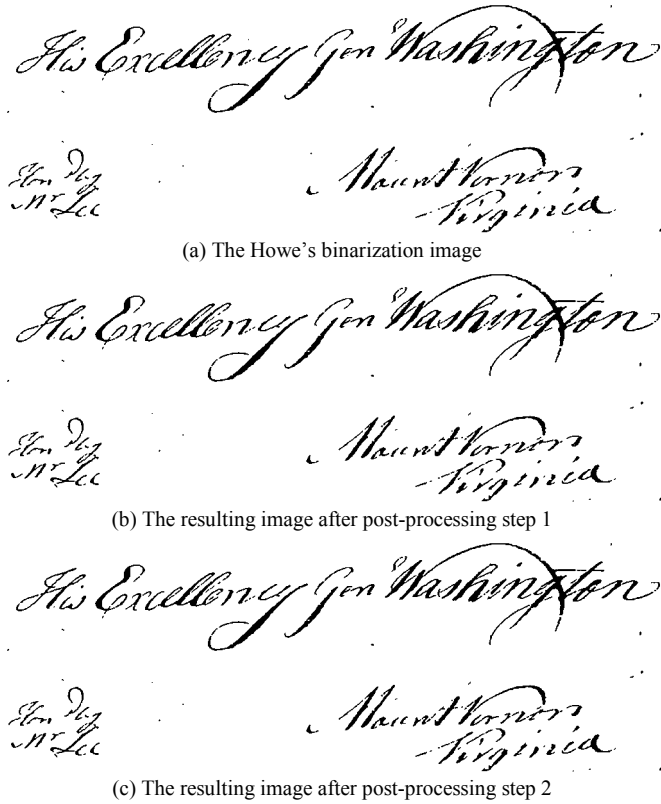 His Excellency Gen.l Washington
Hon Day Mount Vernon
Mr Lee Virginia
(a) The Howe's binarization image
His Excellency Gen.l Washington
Hon Day Mount Vernon
Mr Lee Virginia
(b) The resulting image after post-processing step 1
His Excellency Gen.l Washington
Hon Day Mount Vernon
Mr Lee Virginia
(c) The resulting image after post-processing step 2